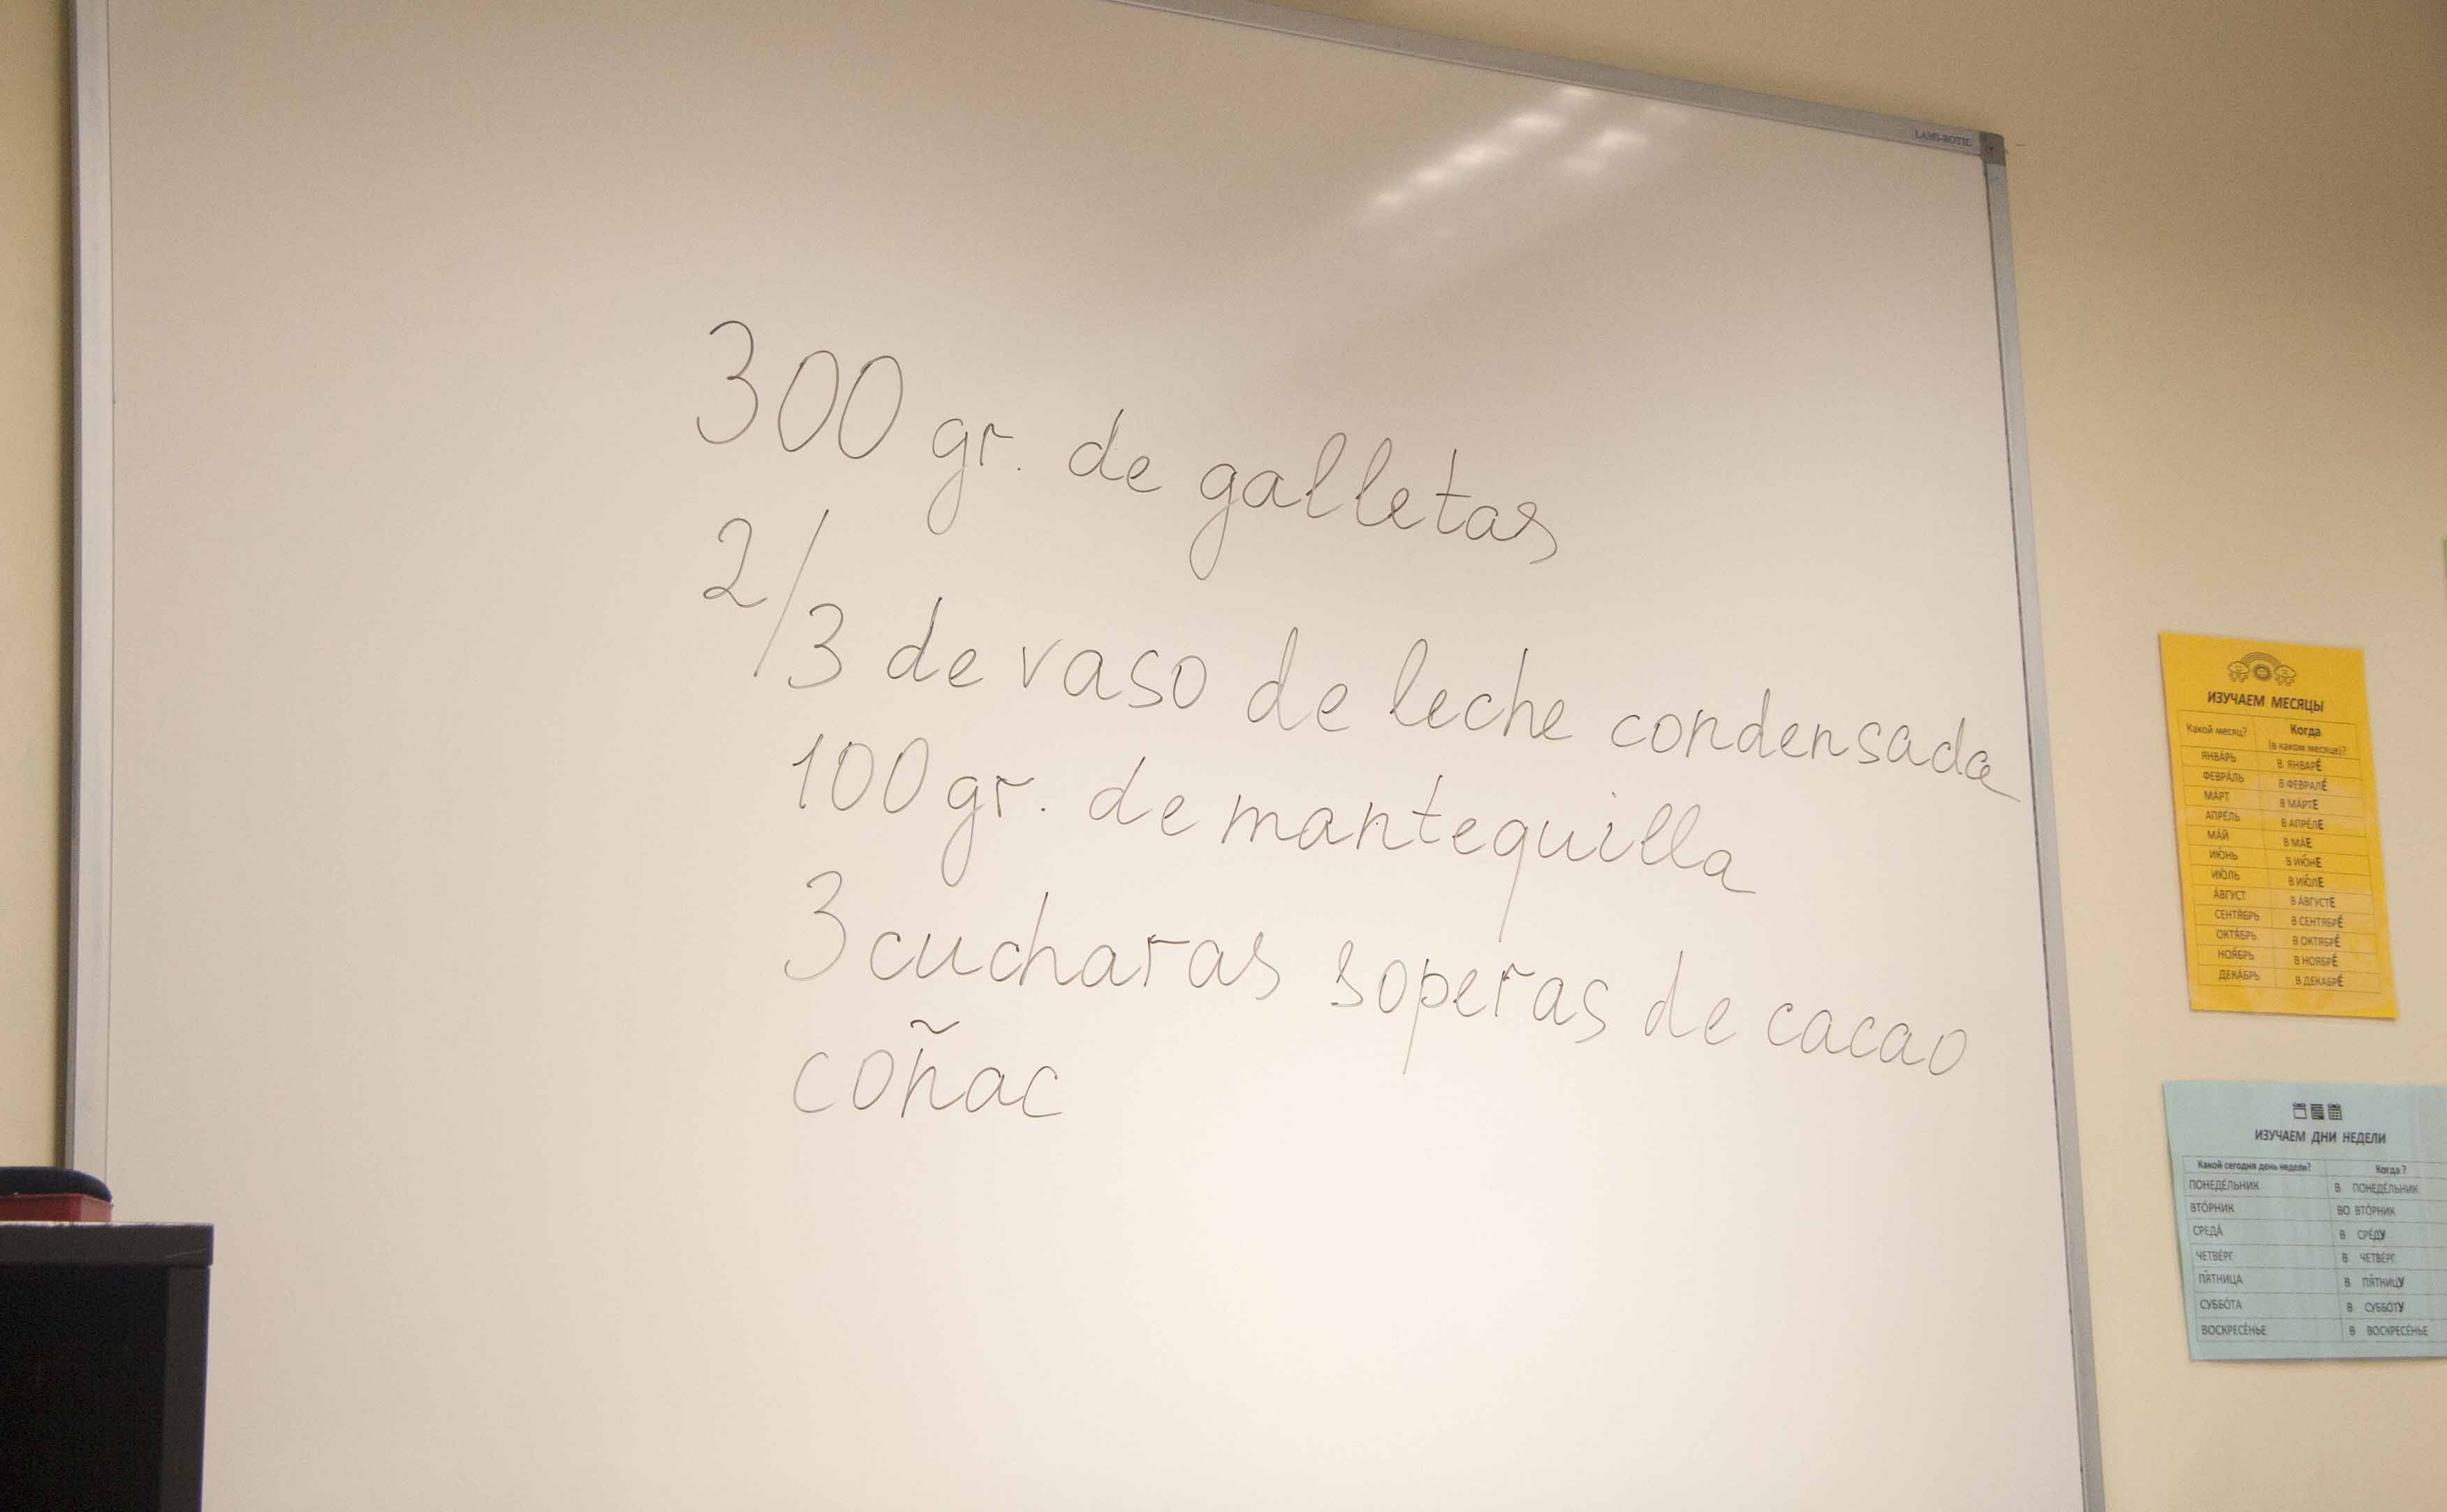 LAMI-ROTIL
300 gr. de galletas
2/3 de vaso de leche condensada
100 gr. de mantequilla
3 cucharas soperas de cacao
coñac
ИЗУЧАЕМ МЕСЯЦЫ
Какой месяц? Когда (в каком месяце)?
ЯНВА́РЬ В ЯНВАРЕ́
ФЕВРА́ЛЬ В ФЕВРАЛЕ́
МА́РТ В МА́РТЕ
АПРЕ́ЛЬ В АПРЕ́ЛЕ
МА́Й В МА́Е
ИЮ́НЬ В ИЮ́НЕ
ИЮ́ЛЬ В ИЮ́ЛЕ
А́ВГУСТ В А́ВГУСТЕ
СЕНТЯ́БРЬ В СЕНТЯБРЕ́
ОКТЯ́БРЬ В ОКТЯБРЕ́
НОЯ́БРЬ В НОЯБРЕ́
ДЕКА́БРЬ В ДЕКАБРЕ́
ИЗУЧАЕМ ДНИ НЕДЕЛИ
Какой сегодня день недели? Когда ?
ПОНЕДЕ́ЛЬНИК В ПОНЕДЕ́ЛЬНИК
ВТО́РНИК ВО ВТО́РНИК
СРЕДА́ В СРЕ́ДУ
ЧЕТВЕ́РГ В ЧЕТВЕ́РГ
ПЯ́ТНИЦА В ПЯ́ТНИЦУ
СУББО́ТА В СУББО́ТУ
ВОСКРЕСЕ́НЬЕ В ВОСКРЕСЕ́НЬЕ